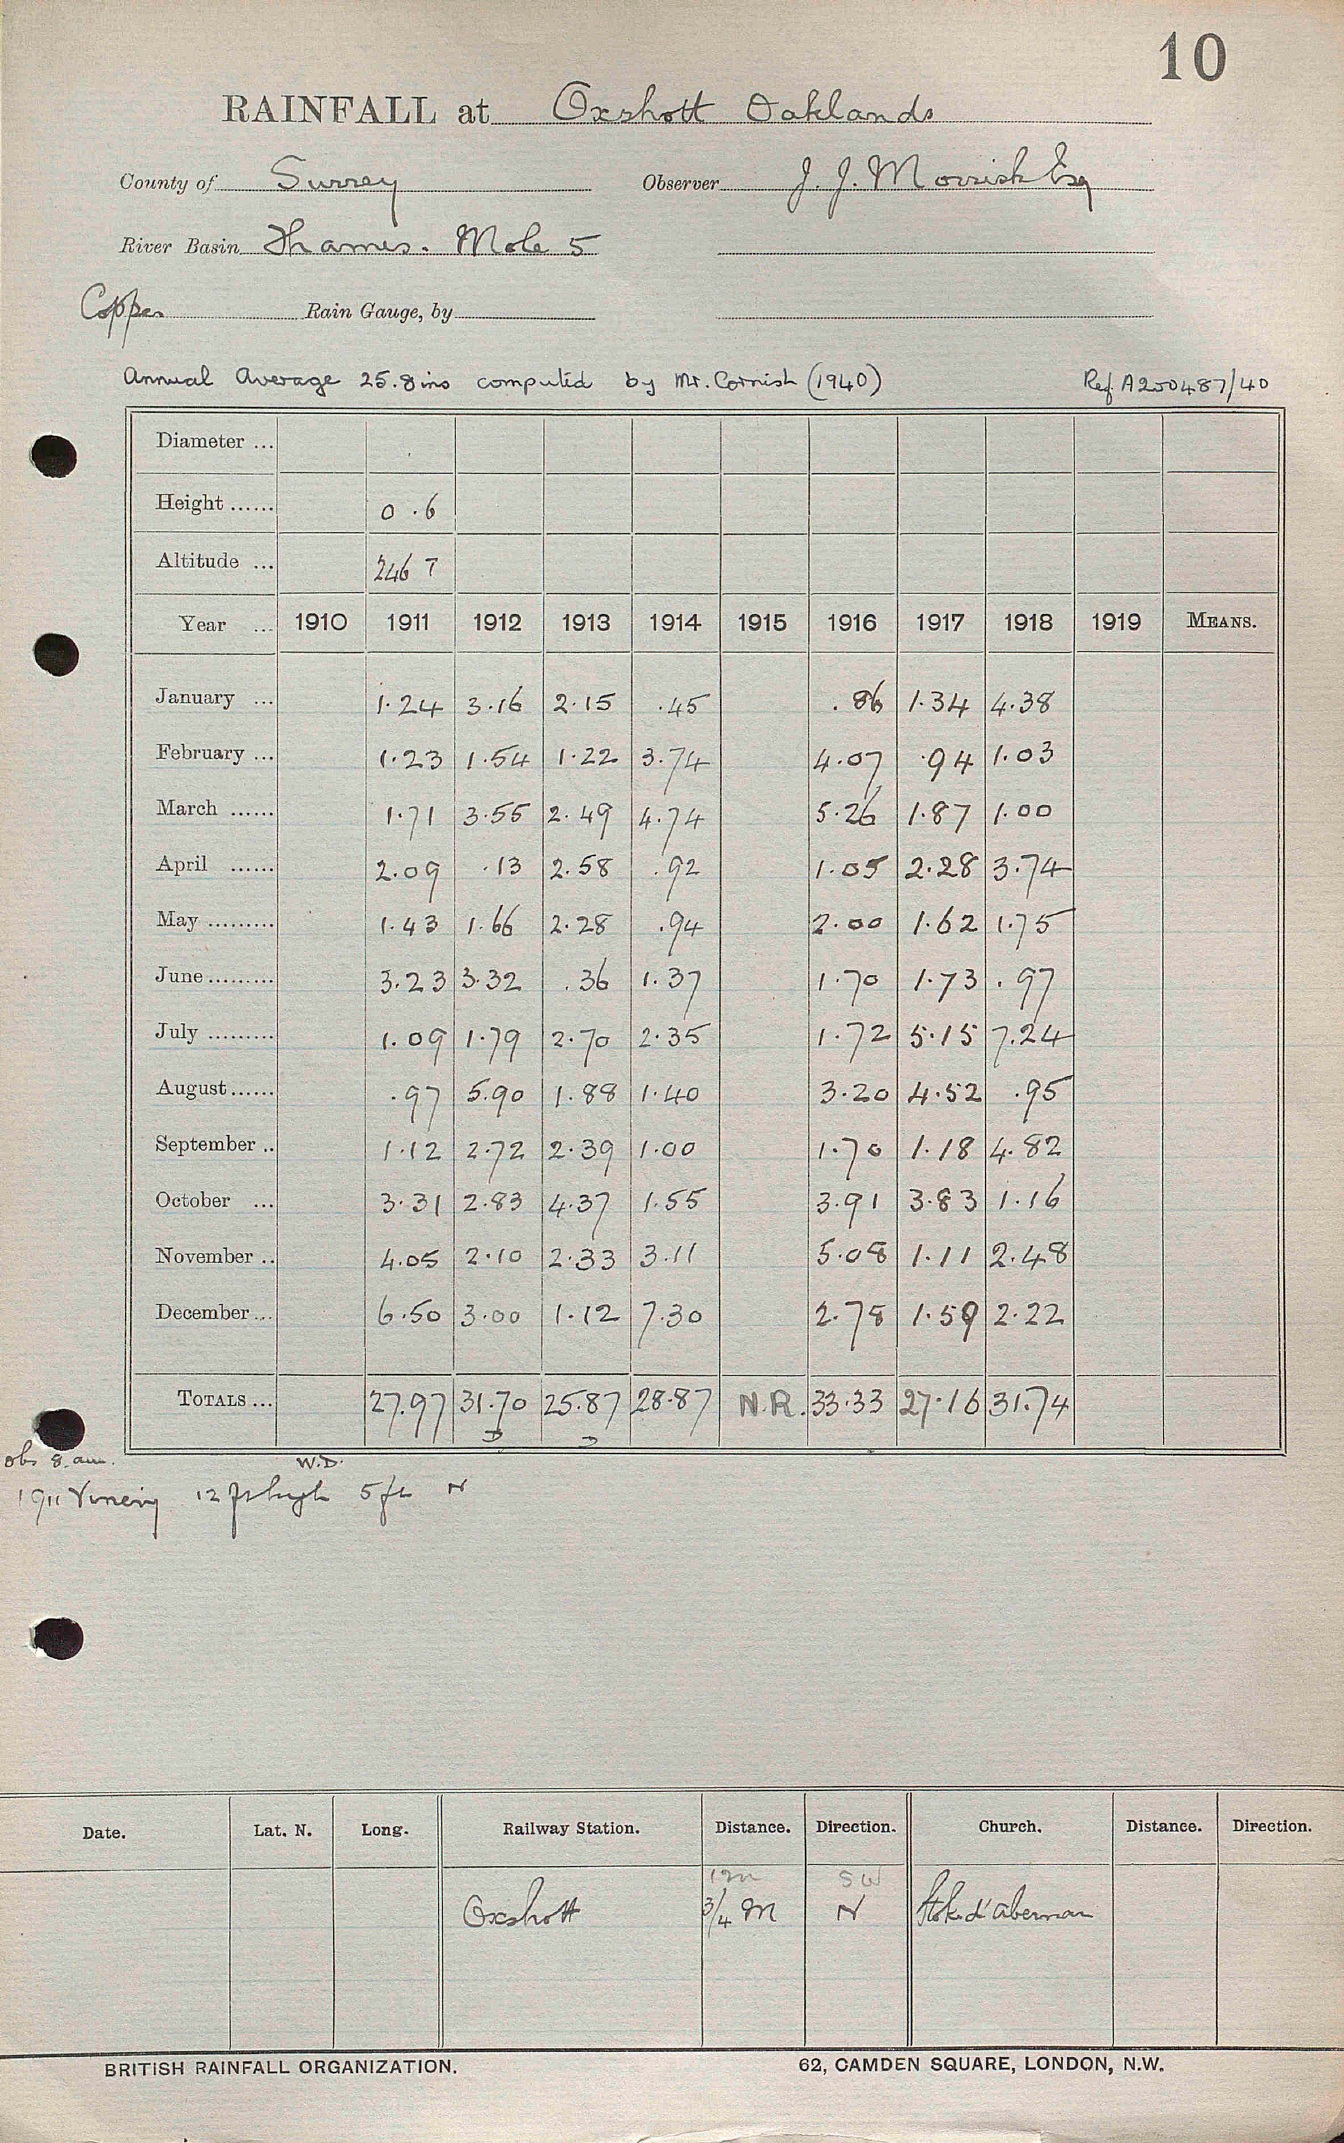 10
RAINFALL at Oxshott Oaklands
County of Surrey Observer J. J. Morrish Esq
River Basin Thames. Mole 5
Copper Rain Gauge, by
Annual Average 25.8 ins computed by Mr. Cornish (1940) Ref. A200487/40
Diameter ...
Height ...... 0.6
Altitude ... 246 T
Year ... 1910 1911 1912 1913 1914 1915 1916 1917 1918 1919 MEANS.
January ... 1.24 3.16 2.15 .45 .86 1.34 4.38
February ... 1.23 1.54 1.22 3.74 4.07 .94 1.03
March ...... 1.71 3.55 2.49 4.74 5.26 1.87 1.00
April ...... 2.09 .13 2.58 .92 1.05 2.28 3.74
May ......... 1.43 1.66 2.28 .94 2.00 1.62 1.75
June ......... 3.23 3.32 .36 1.37 1.70 1.73 .97
July ......... 1.09 1.79 2.70 2.35 1.72 5.15 7.24
August ...... .97 5.90 1.88 1.40 3.20 4.52 .95
September .. 1.12 2.72 2.39 1.00 1.70 1.18 4.82
October ... 3.31 2.83 4.37 1.55 3.91 3.83 1.16
November .. 4.05 2.10 2.33 3.11 5.08 1.11 2.48
December ... 6.50 3.00 1.12 7.30 2.78 1.59 2.22
TOTALS ... 27.97 31.70 25.87 28.87 N.R. 33.33 27.16 31.74
obs 8. am. W.D.
1911 Vinery 12 ft high 5 ft N
Date. Lat. N. Long. Railway Station. Distance. Direction. Church. Distance. Direction.
SW
Oxshott 3/4 M N Stoke d'abernon
BRITISH RAINFALL ORGANIZATION. 62, CAMDEN SQUARE, LONDON, N.W.